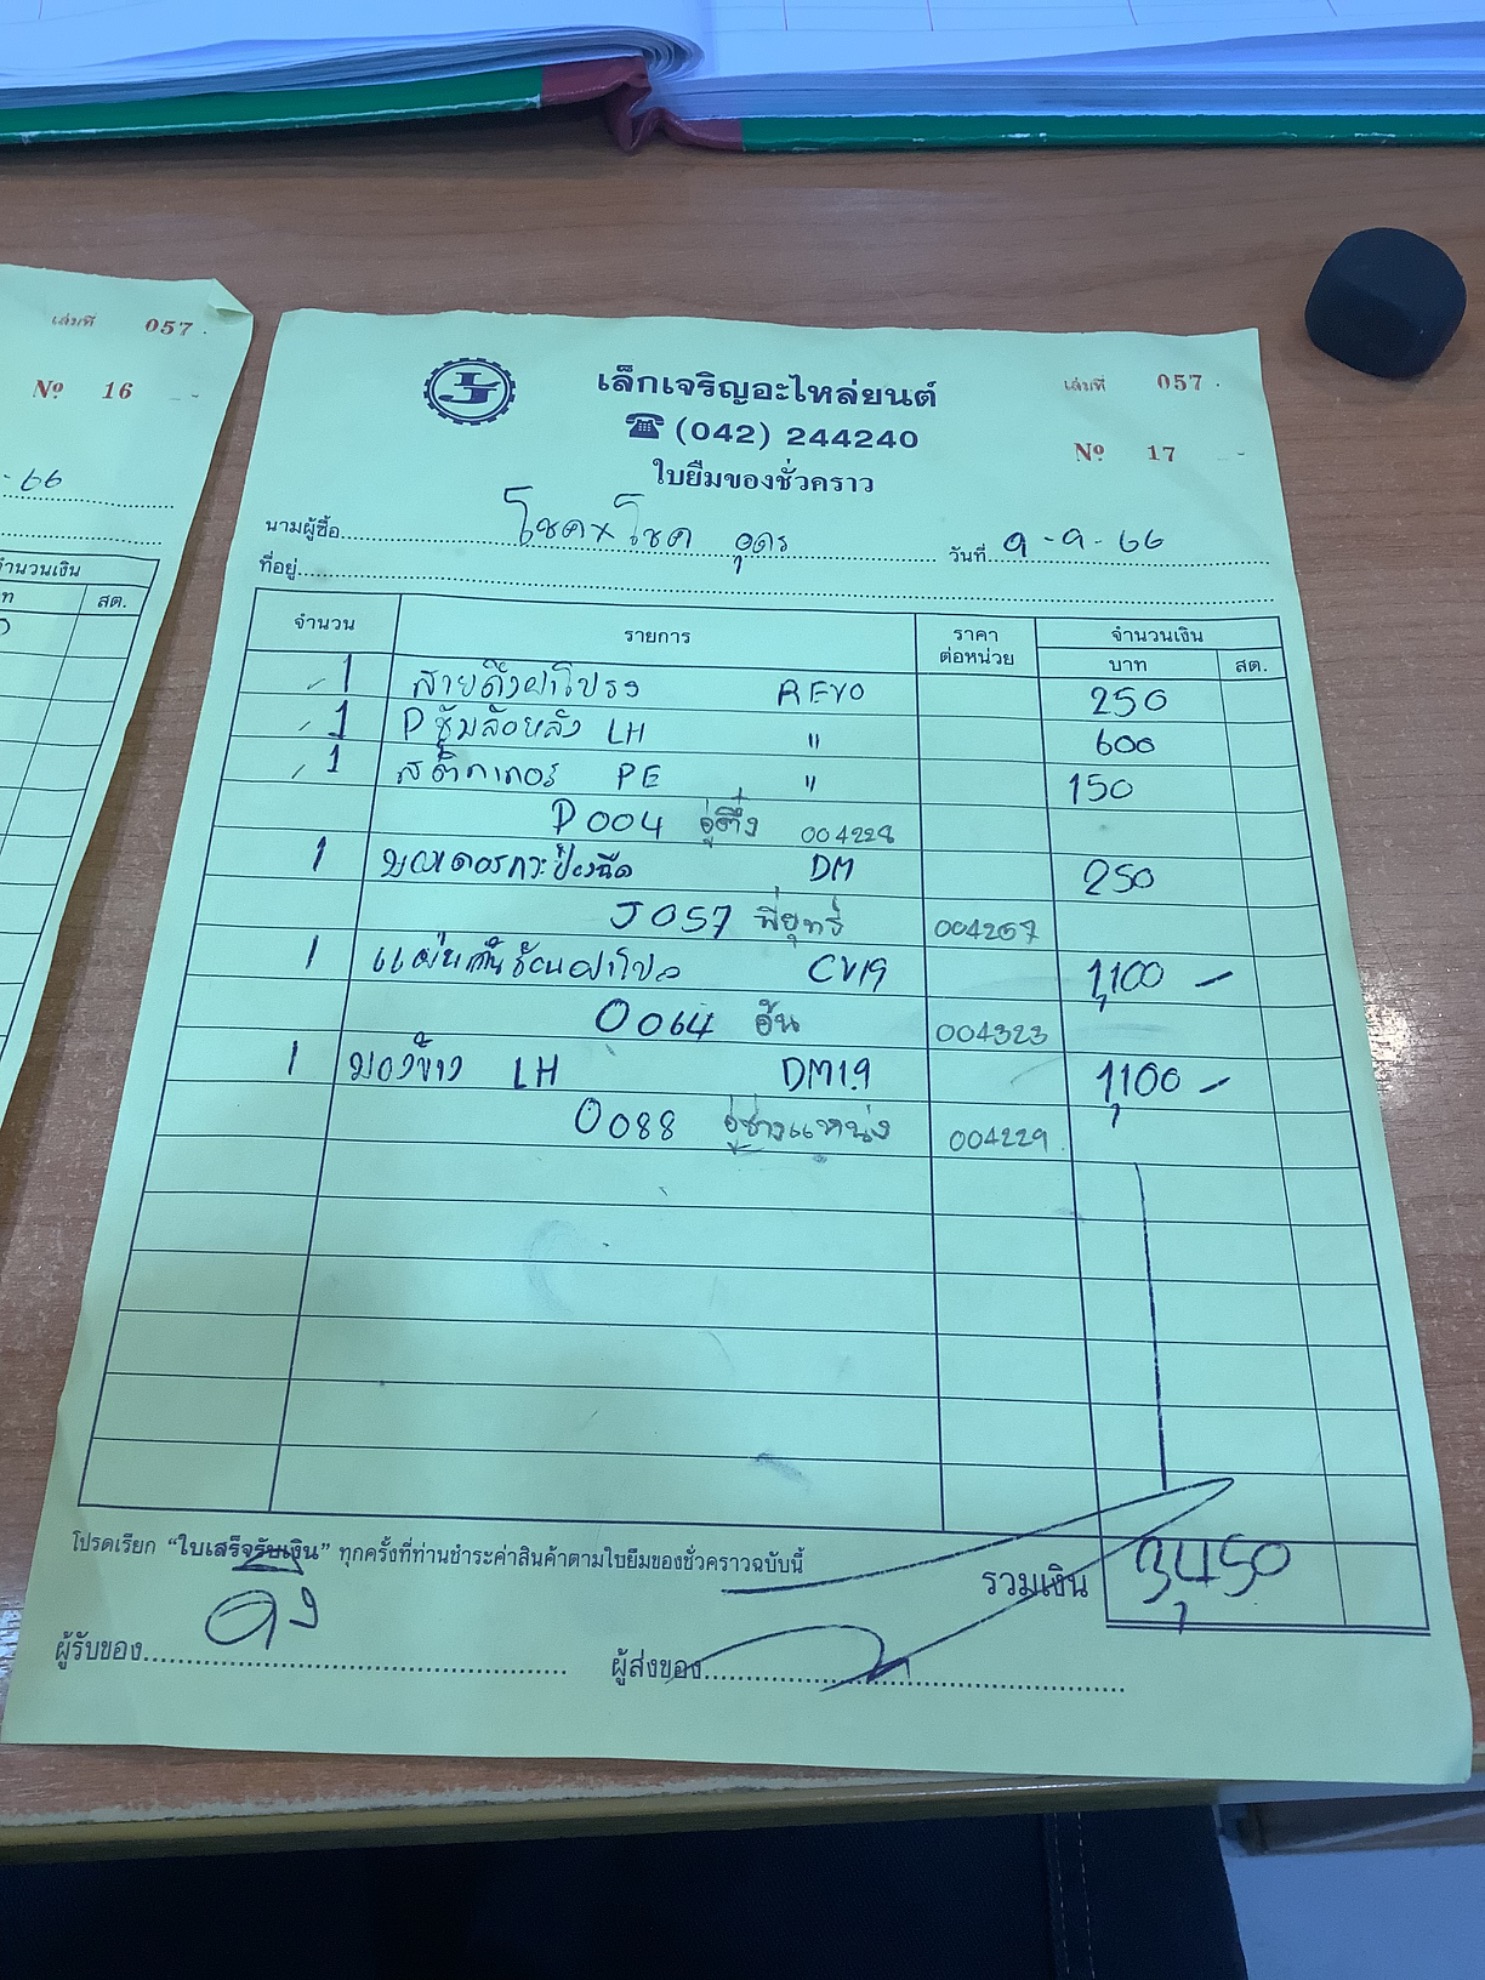 เล่มที่ 057
Nº 16
-66
จำนวนเงิน
ท สต.
เล็กเจริญอะไหล่ยนต์ เล่มที่ 057
(042) 244240 Nº 17
ใบยืมของชั่วคราว
นามผู้ซื้อ โชค x โชค อุดร วันที่ 9-9-66
ที่อยู่
จำนวน รายการ ราคาต่อหน่วย จำนวนเงิน
บาท สต.
1 สายดึงฝาโปรง REVO 250
1 P ซุ้มล้อหลัง LH " 600
1 สติกเกอร์ PE " 150
P004 อู่ตึ๋ง 004228
1 มอเตอร์กระป๋องฉีด DM 250
J057 พี่ยุทร์ 004267
1 แผ่นกันร้อนฝาโปง CV19 1,100 -
0064 อ้น 004323
1 มองข้าง LH DM1.9 1,100 -
0088 อู่ช่างแหน่ง 004229
โปรดเรียก “ใบเสร็จรับเงิน” ทุกครั้งที่ท่านชำระค่าสินค้าตามใบยืมของชั่วคราวฉบับนี้
รวมเงิน 3,450
ผู้รับของ ผู้ส่งของ